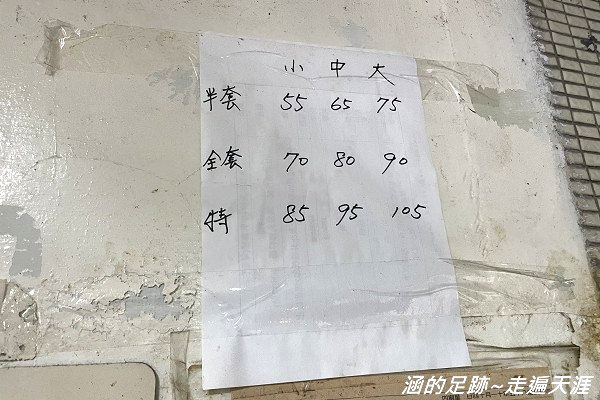 小 中 大
半套 55 65 75
全套 70 80 90
特 85 95 105
涵的足跡~走遍天涯